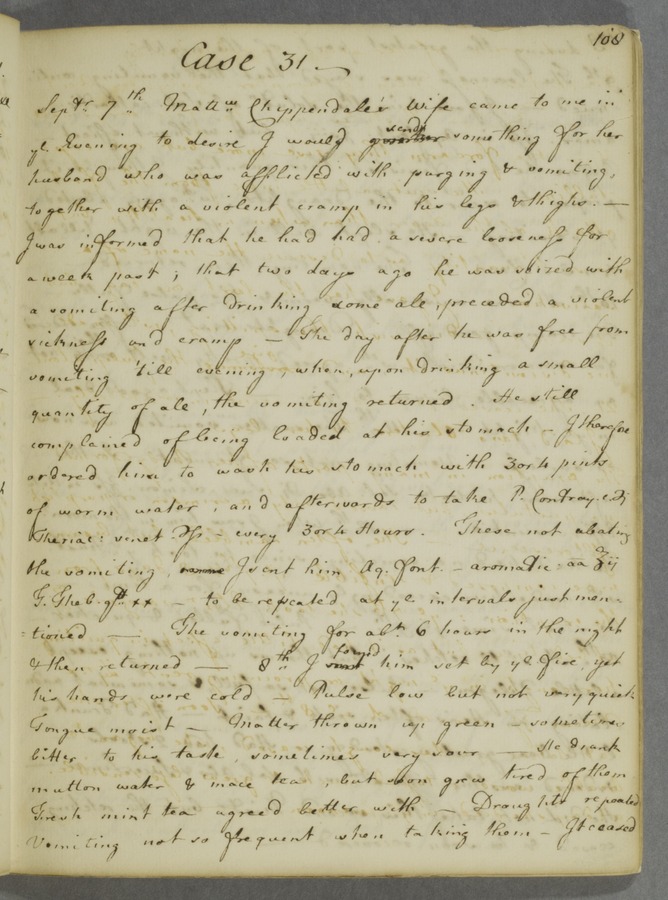 108
Case 31 -
Septr. 7th Mattw Chippendale's Wife came to me in
ye. Evening to desire I would send something for her
husband who was afflicted with purging & vomiting,
together with a violent cramp in his legs & thighs. -
I was informed that he had had a severe looseness for
a week past; that two days ago he was seized with
a vomiting after drinking some ale, preceded a violent
sickness and cramp - The day after he was free from
vomiting 'till evening, when, upon drinking a small
quantity of ale, the vomiting returned. He still
complained of being loaded at his stomach - I therefore
ordered him to wash his stomach with 3 or 4 pints
of warm water, and afterwards to take P. Contray. c.
Theriac: venet ʒss - every 3 or 4 Hours. These not abating
the vomiting, I sent him Aq. font. - aromatic: aa ℥ij
T. Theb. gtt xx - to be repeated at ye intervals just men-
=tioned - The vomiting for abt. 6 hours in the night
& then returned - 8th I found him set by ye fire, yet
his hands were cold - Pulse low but not very quick
Tongue moist - Matter thrown up green - sometimes
bitter to his taste, sometimes very sour - He drank
mutton water & mace tea, but soon grew tired of them
Fresh mint tea agreed better with - Draughts repeated
Vomiting not so frequent when taking them - It ceased